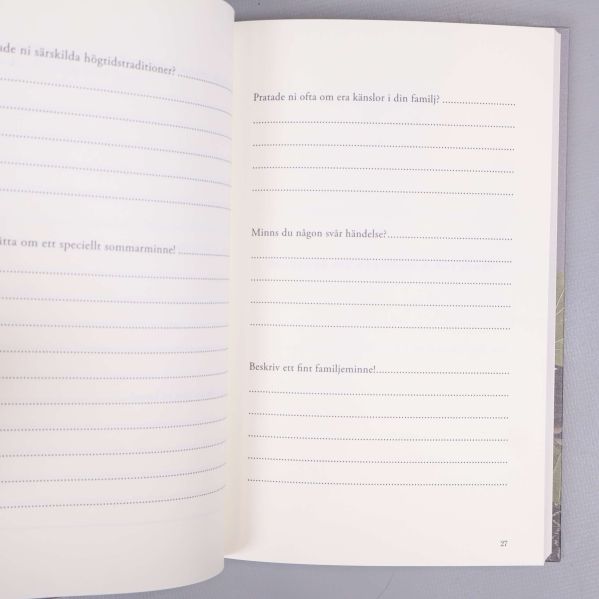 ni särskilda högtidstraditioner?
om ett speciellt sommarminne!
Pratade ni ofta om era känslor i din familj?
Minns du någon svår händelse?
Beskriv ett fint familjeminne!
27